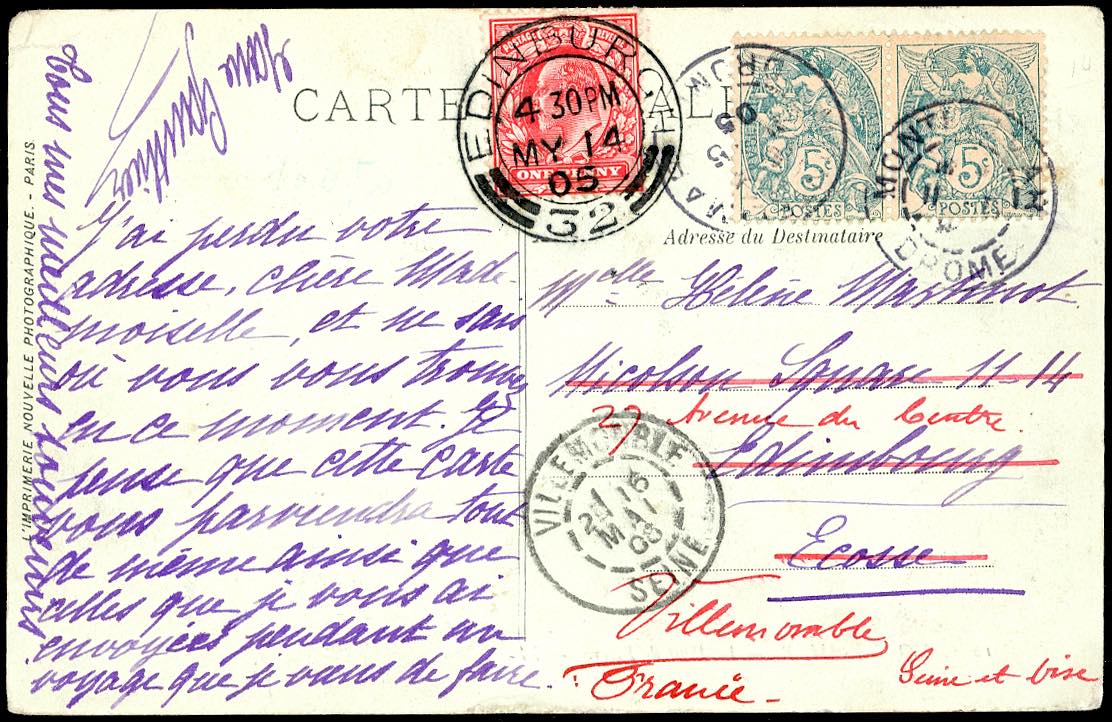 CARTE POSTALE
L'IMPRIMERIE NOUVELLE PHOTOGRAPHIQUE. - PARIS.
J'ai perdu votre
adresse, chère Made-
moiselle, et ne sais
où vous vous trouvez
en ce moment. Je
pense que cette carte
vous parviendra tout
de même ainsi que
celles que je vous ai
envoyées pendant un
voyage que je viens de faire.
Tous mes meilleurs souvenirs
POSTAGE REVENUE
ONE PENNY
EDINBURGH
4 30PM
MY 14
05
32
5c
POSTES
5c
POSTES
DROME
Adresse du Destinataire
Mlle Hélène Martinot
Nicolson Square 11-14
27 Avenue du Centre.
Edimbourg
Ecosse
VILLEMOMBLE
16
MAI
05
SEINE
Villemomble
France
Seine et Oise